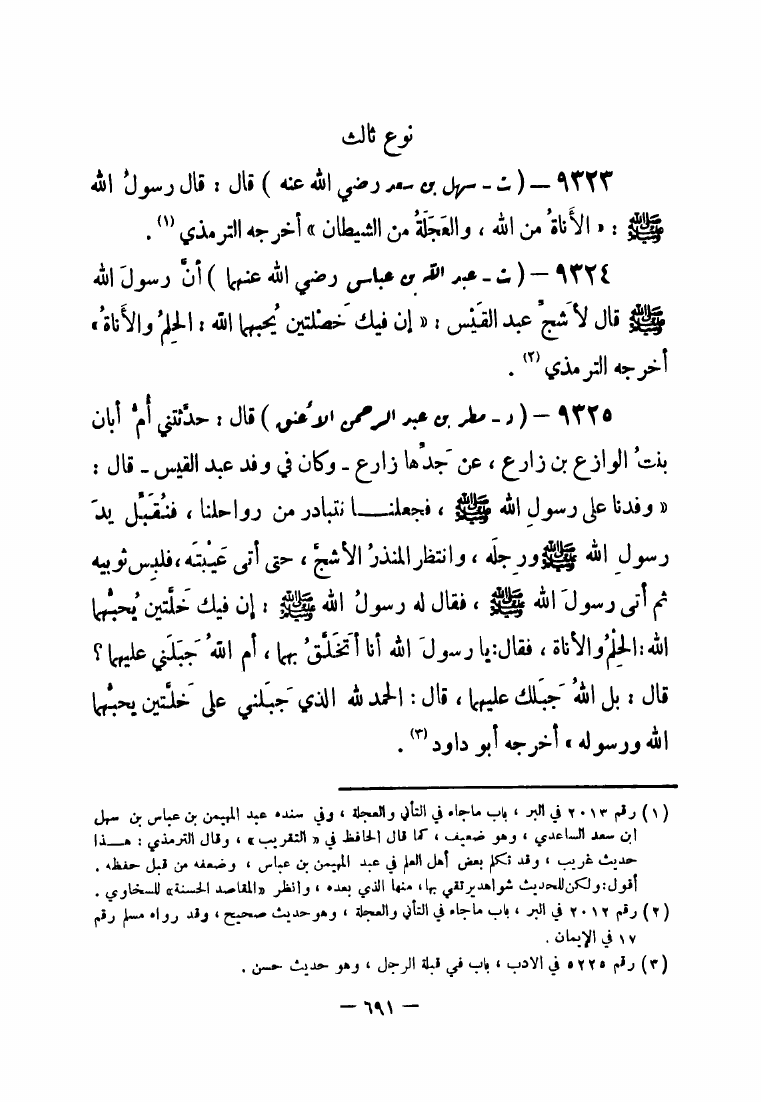 نوع ثالث
٩٣٢٣ – ( ت - سهل بن سعد رضي الله عنه ) قال : قال رسولُ الله
ﷺ : « الأَناةُ من الله ، والعَجَلَةُ من الشيطان » أخرجه الترمذي (١) .
٩٣٢٤ – ( ت - عبد الله بن عباس رضي الله عنهما ) أنَّ رسولَ الله
ﷺ قال لأَشجِّ عبد القَيْس : « إن فيك خَصْلتين يُحبهما الله : الحلمُ والأَناةُ »
أخرجه الترمذي (٢) .
٩٣٢٥ – ( د - مطر بن عبد الرحمن الأعنق ) قال : حدَّثتني أُمُّ أبان
بنتُ الوازع بن زارع ، عن جَدِّها زارع - وكان في وفد عبد القيس - قال :
« وفدنا على رسولِ الله ﷺ ، فجعلنا نتبادر من رواحلنا ، فنُقَبِّل يدَ
رسولِ الله ﷺ ورِجلَه ، وانتظر المنذرُ الأشجَّ ، حتى أتى عَيْبتَه ، فلبس ثوبيه
ثم أتى رسولَ الله ﷺ ، فقال له رسولُ الله ﷺ : إن فيك خَلَّتين يُحبُّهما
الله : الحِلْمُ والأناة ، فقال : يا رسولَ الله أنا أتَخَلَّقُ بهما ، أم اللهُ جَبَلَني عليهما ؟
قال : بل اللهُ جَبَلك عليهما ، قال : الحمد لله الذي جَبَلني على خَلَّتين يحبُّهما
الله ورسوله » أخرجه أبو داود (٣) .
(١) رقم ٢٠١٣ في البر ، باب ماجاء في التأني والعجلة ، وفي سنده عبد المهيمن بن عباس بن سهل
ابن سعد الساعدي ، وهو ضعيف ، كما قال الحافظ في « التقريب » ، وقال الترمذي : هذا
حديث غريب ، وقد تكلم بعض أهل العلم في عبد المهيمن بن عباس ، وضعفه من قبل حفظه .
أقول : ولكن للحديث شواهد يرتقي بها ، منها الذي بعده ، وانظر « المقاصد الحسنة » للسخاوي .
(٢) رقم ٢٠١٢ في البر ، باب ماجاء في التأني والعجلة ، وهو حديث صحيح ، وقد رواه مسلم رقم
١٧ في الإيمان .
(٣) رقم ٥٢٢٥ في الادب ، باب في قبلة الرجل ، وهو حديث حسن .
– ٦٩١ –